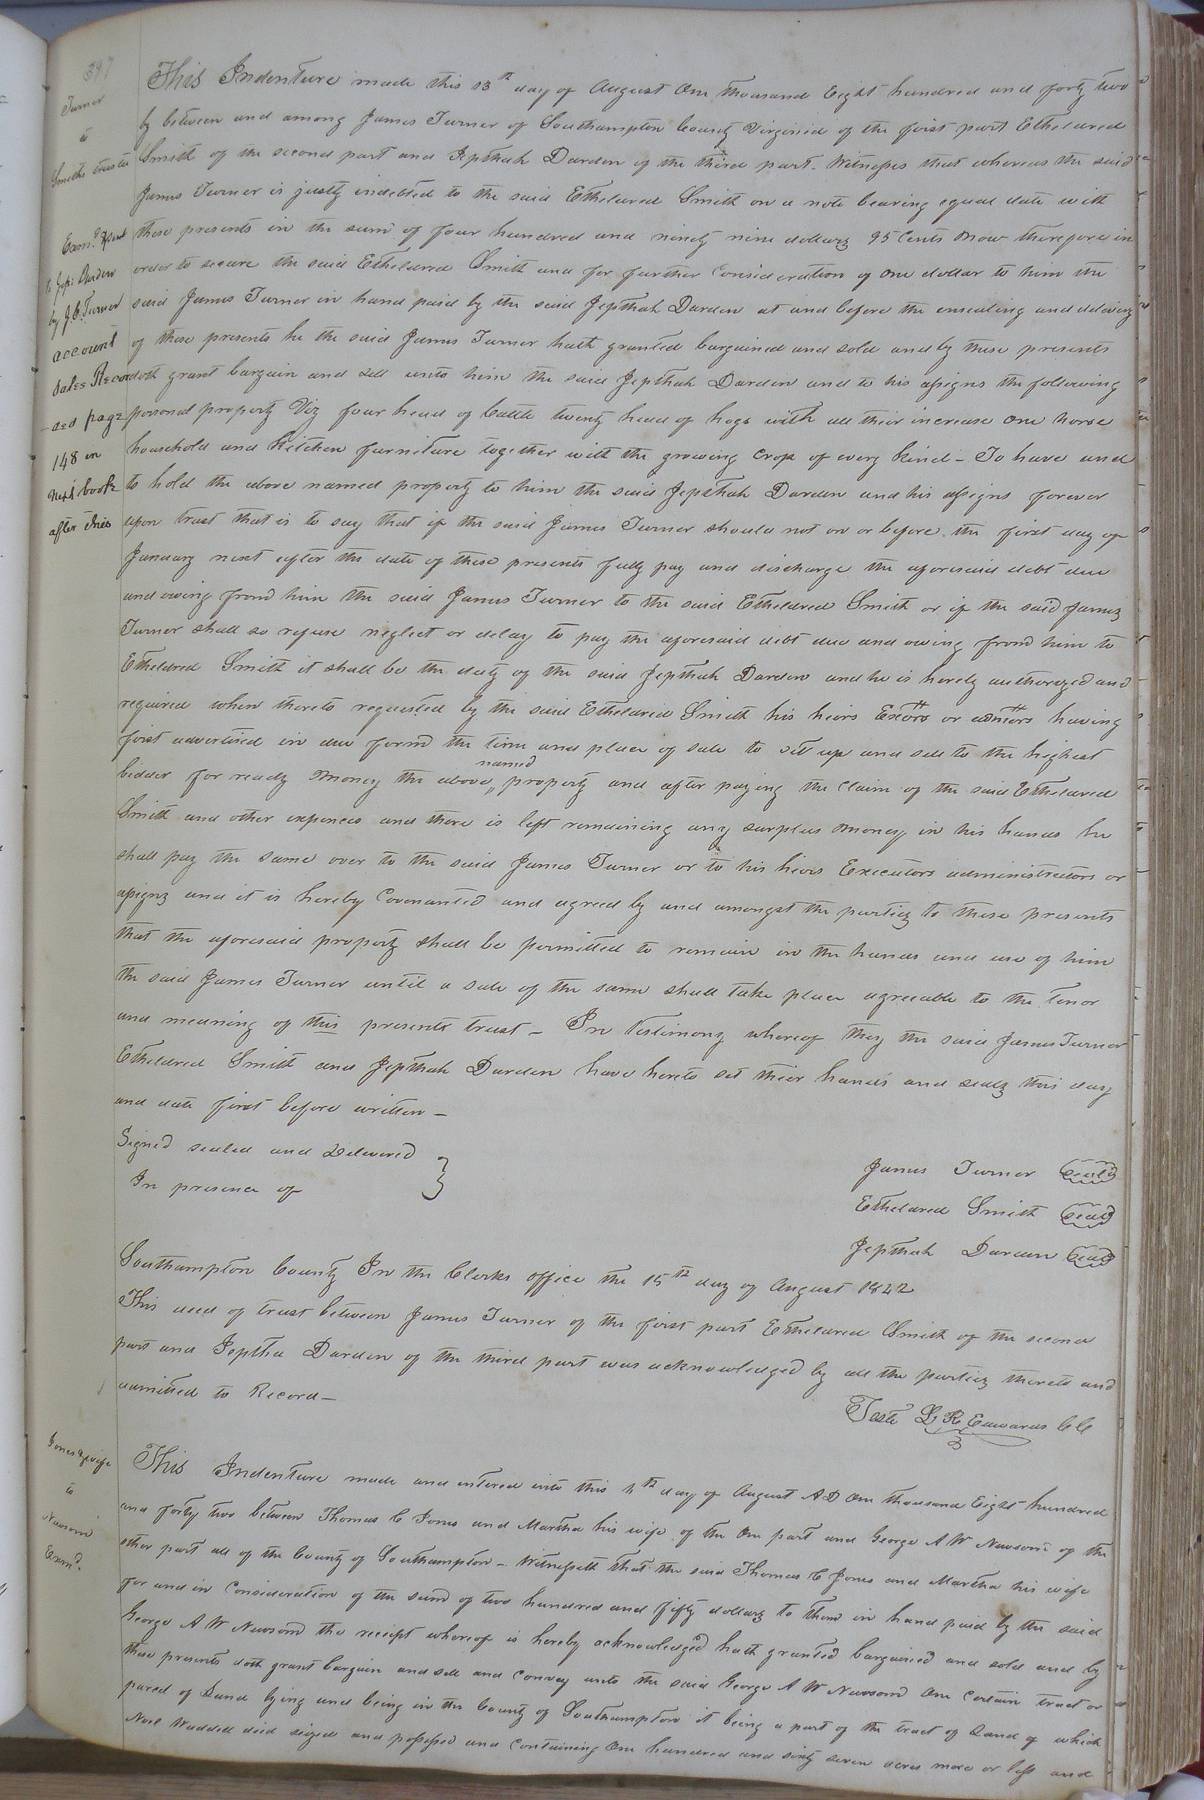 397
Turner
to
Smiths trustee
Exam.d & sent
to Jep: Darden
by J. E. Turner
account
sales Recor
-ded page
148 in
next book
after this
This Indenture made this 13th day of August One thousand Eight hundred and forty two
by between and among James Turner of Southampton County Virginia of the first part Etheldred
Smith of the second part and Jepthah Darden of the third part. Witnesses that whereas the said
James Turner is justly indebted to the said Etheldred Smith on a note bearing equal date with
these presents in the sum of four hundred and ninety nine dollars 95 Cents Now therefore in
order to secure the said Etheldred Smith and for further Consideration of one dollar to him the
said James Turner in hand paid by the said Jepthah Darden at and before the ensealing and delivery
of these presents he the said James Turner hath granted bargained and sold and by these presents
doth grant bargain and sell unto him the said Jepthah Darden and to his assigns the following
personal property Viz four head of Cattle twenty head of hogs with all their increase one horse
household and Kitchen furniture together with the growing Crop of every kind - To have and
to hold the above named property to him the said Jepthah Darden and his assigns forever
upon trust that is to say that if the said James Turner should not on or before the first day of
January next after the date of these presents fully pay and discharge the aforesaid debt due
and owing from him the said James Turner to the said Etheldred Smith or if the said James
Turner shall so refuse neglect or delay to pay the aforesaid debt due and owing from him to
Etheldred Smith it shall be the duty of the said Jepthah Darden and he is hereby authorized and
required when thereto requested by the said Etheldred Smith his heirs Exors or admors having
first advertised in due form the time and place of sale to set up and sell to the highest
bidder for ready money the above named property and after paying the Claim of the said Etheldred
Smith and other expences and there is left remaining any surplus money in his hands he
shall pay the same over to the said James Turner or to his heirs Executors administrators or
assigns and it is hereby Covenanted and agreed by and amongst the parties to these presents
that the aforesaid property shall be permitted to remain in the hands and use of him
the said James Turner until a sale of the same shall take place agreeable to the tenor
and meaning of this presents trust - In Testimony whereof they the said James Turner
Etheldred Smith and Jepthah Darden have hereto set their hands and seals this day
and date first before written -
Signed sealed and Delivered
In presence of
James Turner seal
Etheldred Smith seal
Jepthah Darden seal
Southampton County In the Clerks office the 15th day of August 1842
This deed of trust between James Turner of the first part Etheldred Smith of the second
part and Jeptha Darden of the third part was acknowledged by all the parties thereto and
admitted to Record -
Teste L R Edwards CC
Jones & wife
to
Newsom
Exam.d
This Indenture made and entered into this day of August AD One thousand Eight hundred
and forty two between Thomas C Jones and Martha his wife of the One part and George A W Newsom of the
other part all of the County of Southampton - Witnesseth that the said Thomas C Jones and Martha his wife
for and in Consideration of the sum of two hundred and fifty dollars to them in hand paid by the said
George A W Newsom the receipt whereof is hereby acknowledged hath granted bargained and sold and by
these presents doth grant bargain and sell and Convey unto the said George A W Newsom One Certain tract or
parcel of Land lying and being in the County of Southampton it being a part of the tract of Land of which
Noel Waddell died seized and possessed and Containing One hundred and sixty seven acres more or less and